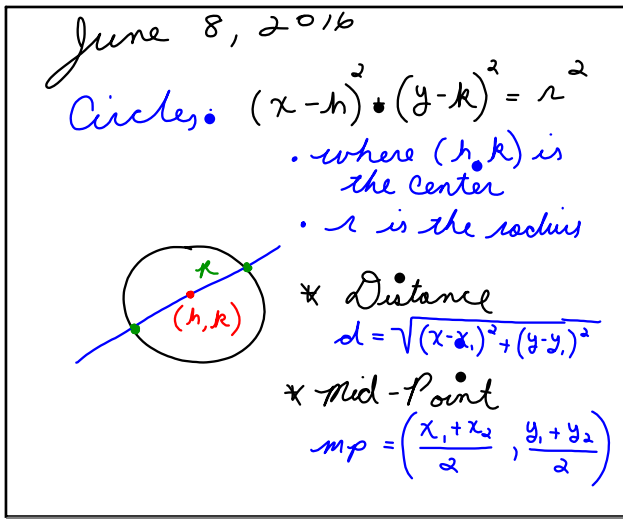 June 8, 2016
Circles: (x-h)² + (y-k)² = r²
• where (h,k) is
the center
• r is the radius
r
(h,k)
* Distance
d = √(x-x₁)² + (y-y₁)²
* Mid-Point
mp = (x₁ + x₂ / 2 , y₁ + y₂ / 2)